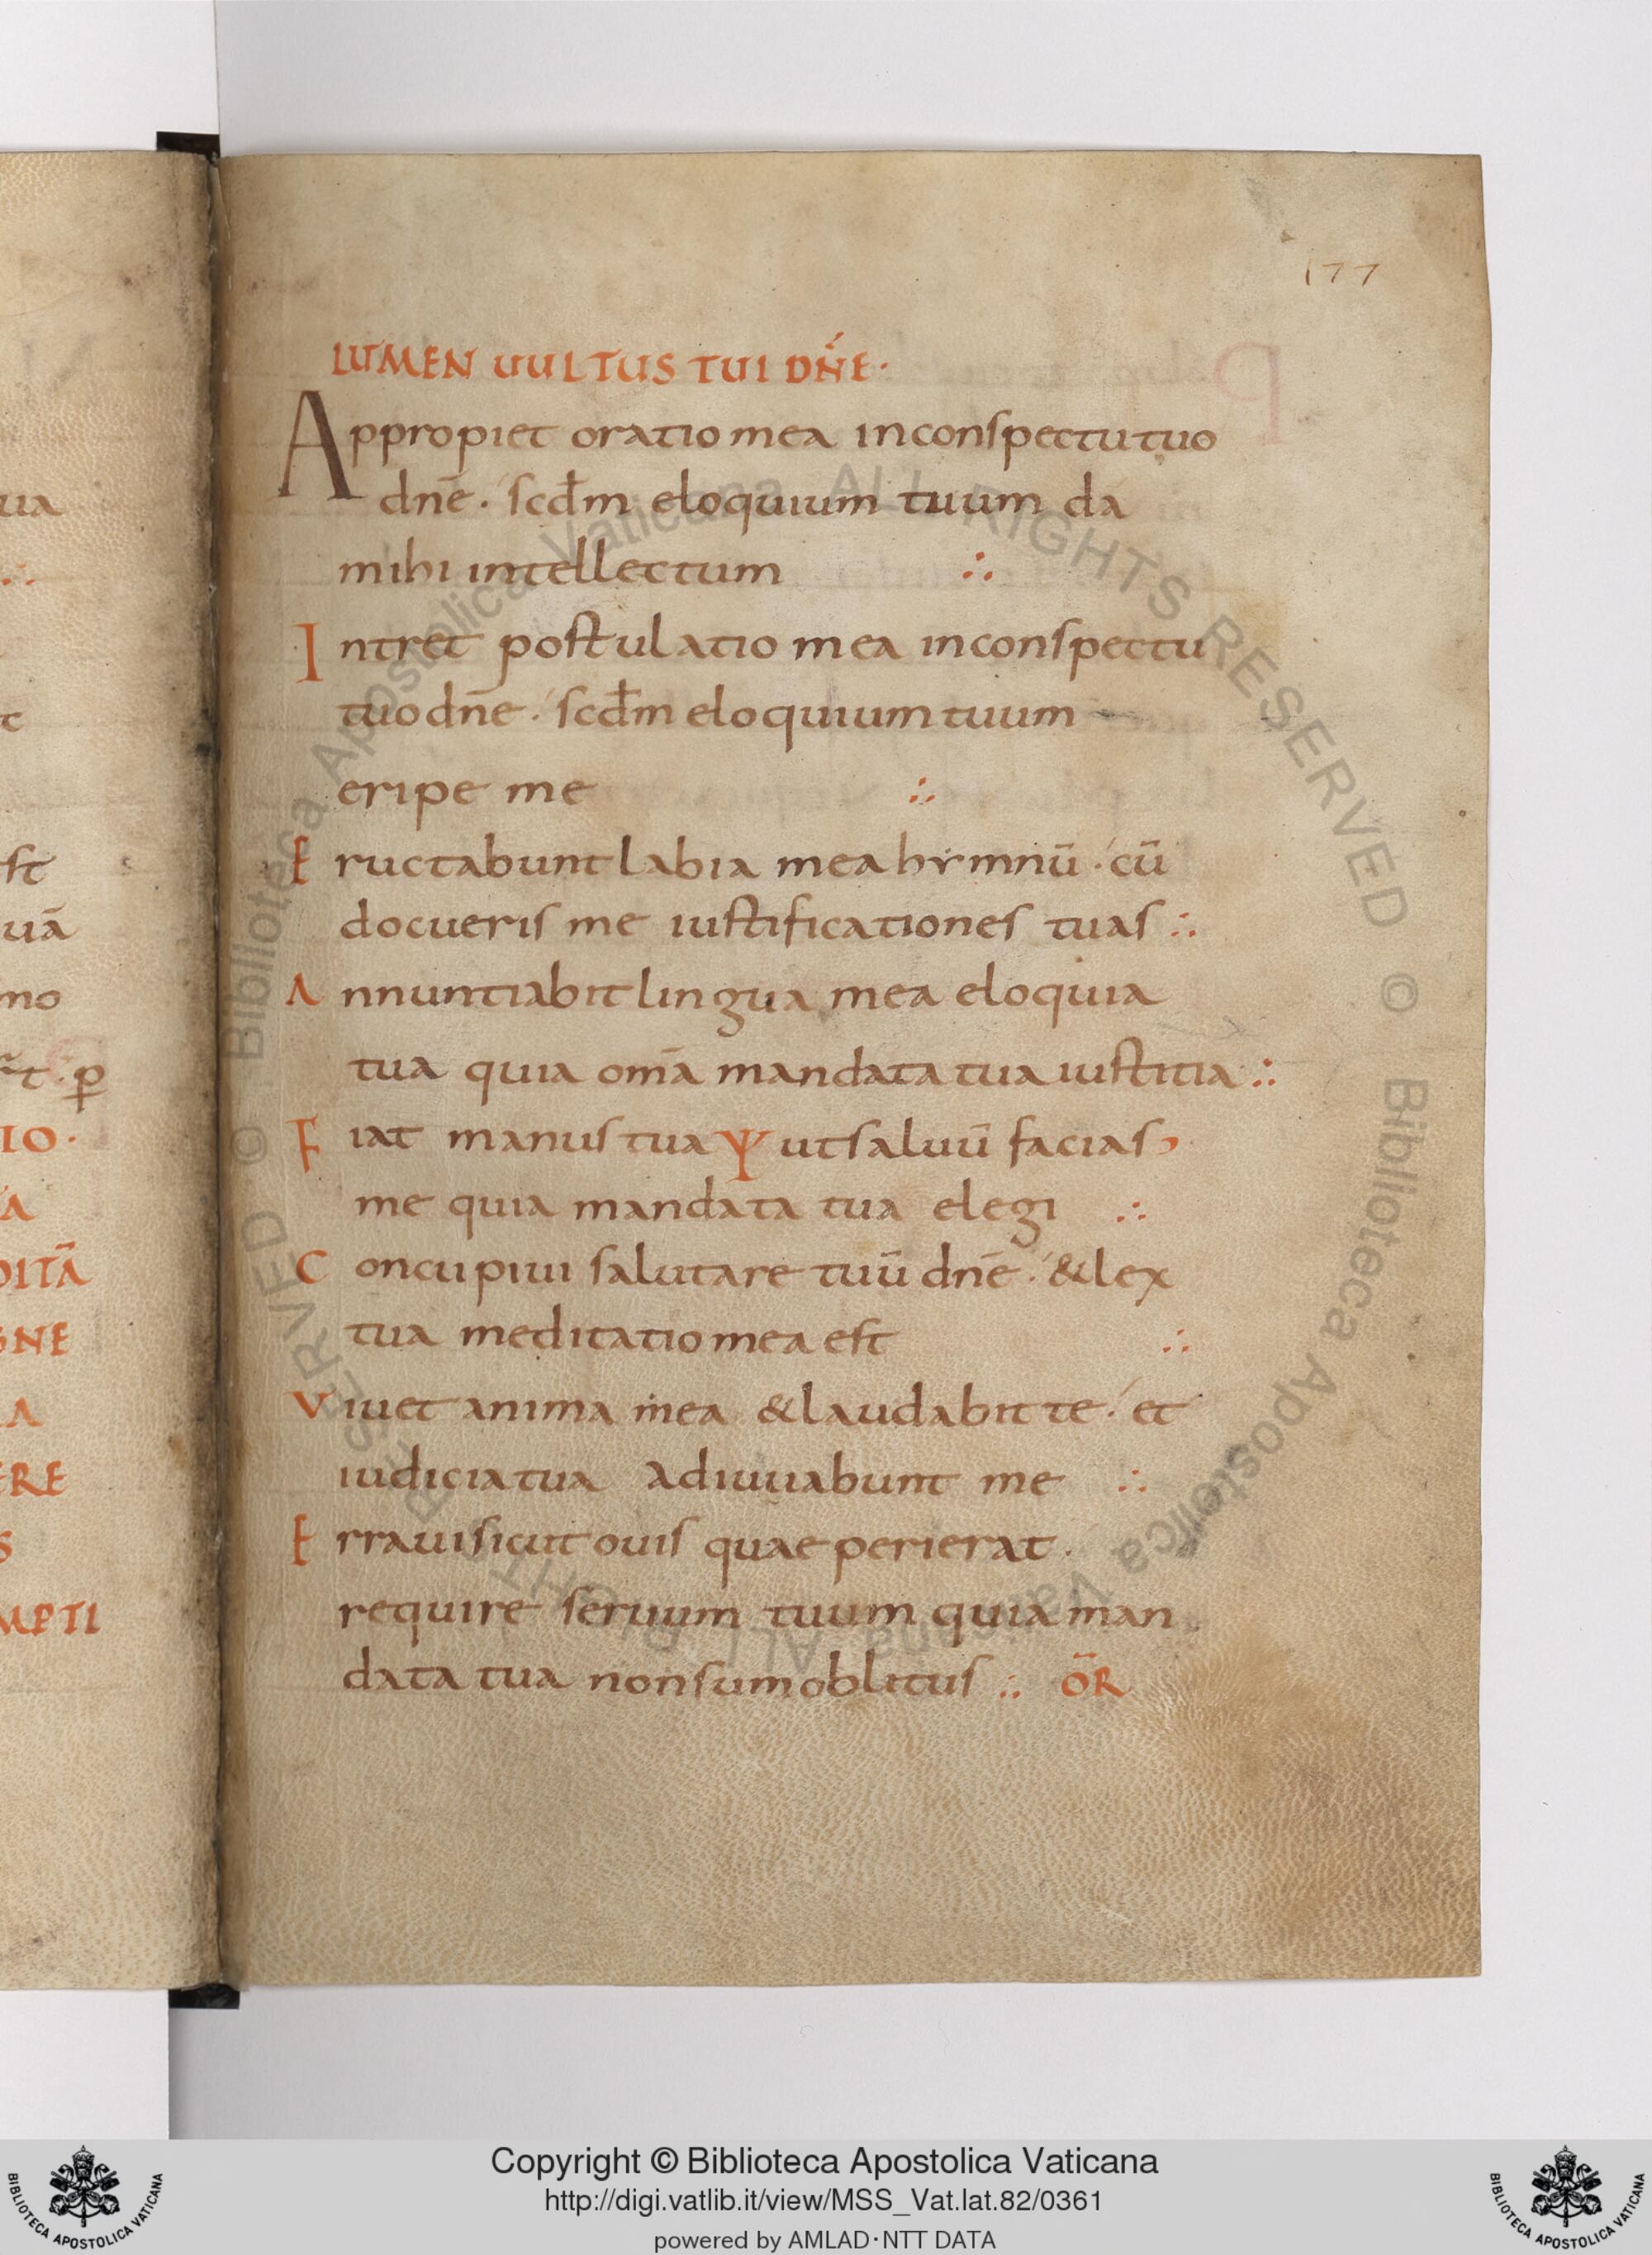 177
LUMEN UULTUS TUI DN̄E·
Appropiet oratio mea inconspectu tuo
dn̄e. scd̄m eloquium tuum da
mihi intellectum ∴
Intret postulatio mea inconspectu
tuo dn̄e. scd̄m eloquium tuum
eripe me ∴
Eructabunt labia mea hymnū. cū
docueris me iustificationes tuas ∴
Annuntiabit lingua mea eloquia
tua quia om̄a mandata tua iustitia ∴
Fiat manus tua Ψ ut saluū facias
me quia mandata tua elegi ∴
Concupiui salutare tuū dn̄e. & lex
tua meditatio mea est ∴
Viuet anima mea & laudabit te. et
iudicia tua adiuuabunt me ∴
Erraui sicut ouis quae perierat.
require seruum tuum quia man
data tua non sum oblitus ∴ ŌR
ua
c
st
uā
mo
IO·
A
DITĀ
GNE
A
ERE
S
MPTI
© Biblioteca Apostolica Vaticana ALL RIGHTS RESERVED © Biblioteca Apostolica Vaticana ALL RIGHTS RESERVED
Copyright © Biblioteca Apostolica Vaticana
http://digi.vatlib.it/view/MSS_Vat.lat.82/0361
powered by AMLAD·NTT DATA
BIBLIOTECA APOSTOLICA VATICANA
BIBLIOTECA APOSTOLICA VATICANA